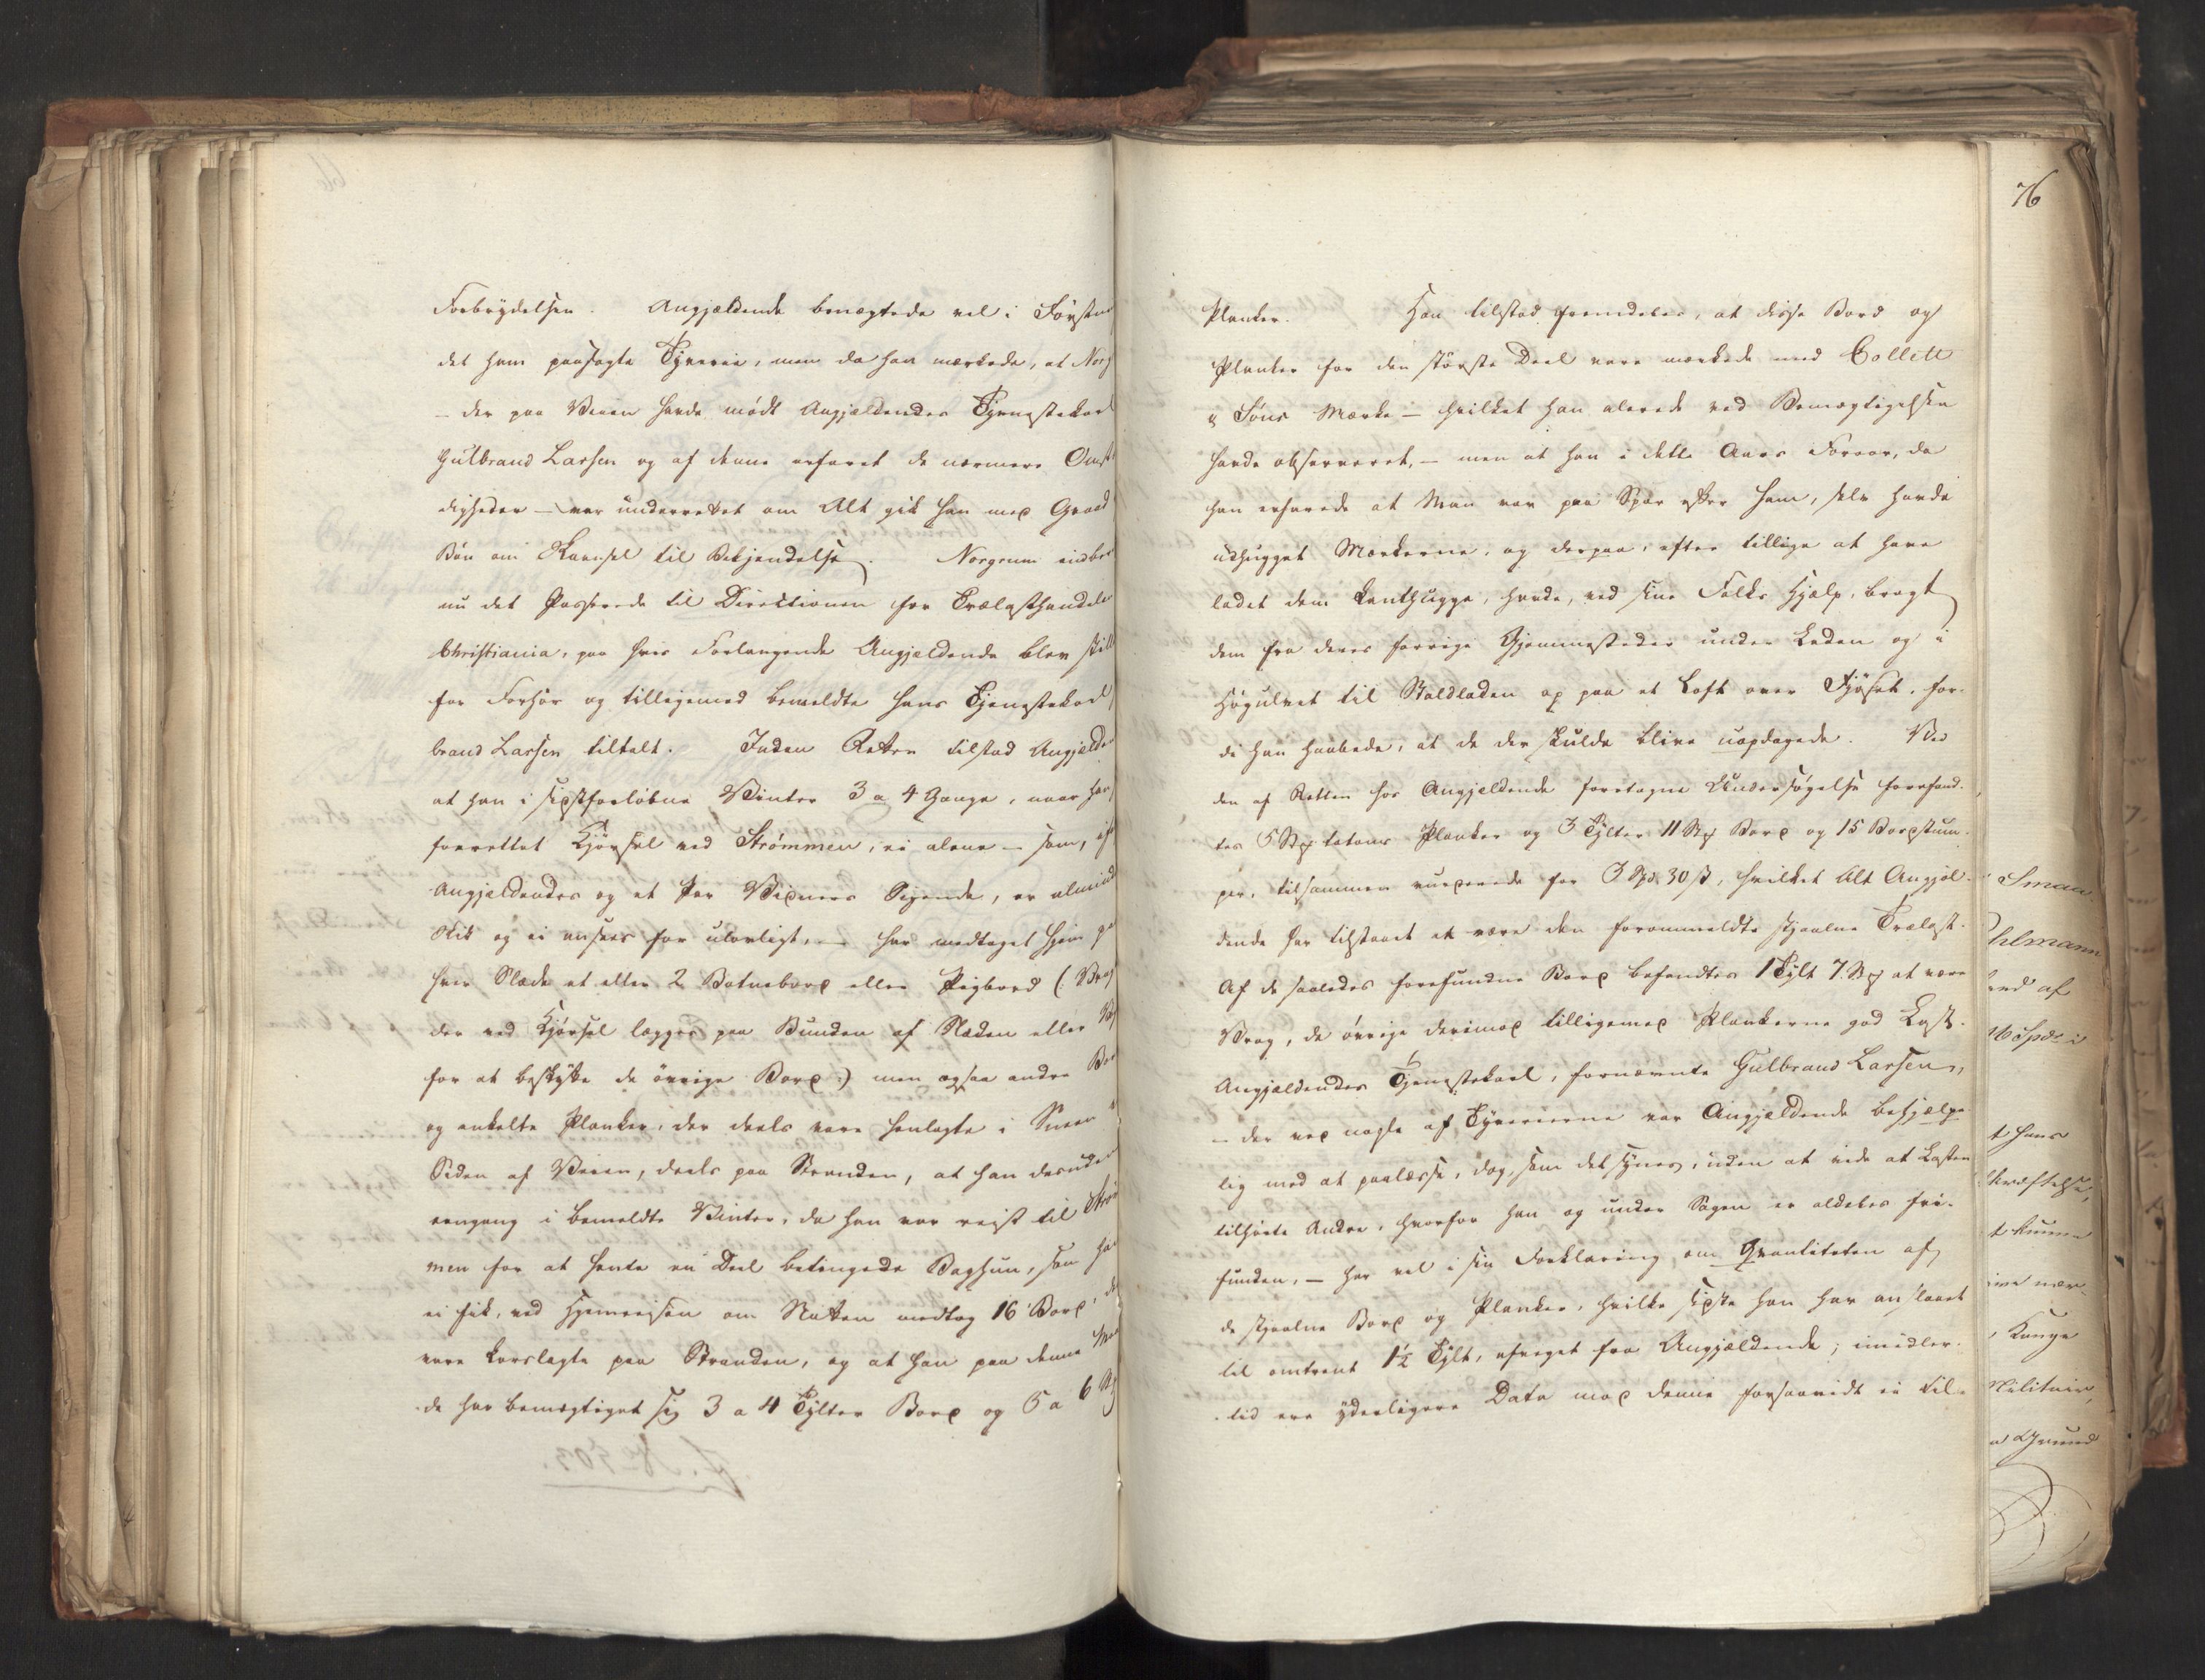 Forbrydelsen. Angjældende benægtede vel i Førsten
det ham paasagte Tyverie, men da han mærkede, at Norg
– der paa Veien havde mødt Angjældendes Tjenestekarl
Gulbrand Larsen og af denne erfaret de nærmere Omst
digheder – var underrettet om Alt gik han med Graad
Bøn om Skaansel til Bekjendelse. Norgrum indbe
nu det Passerede til Directionen for Trælasthandele
Christiania, paa hvis Forlangende Angjældende blev still
for Forhør og tilligemed bemeldte hans Tjenestekarl
brand Larsen tiltalt. Inden Retten tilstod Angjælde
at han i sidstforløbne Vinter 3 a 4 Gange, naar han
forrettet Kjørsel ved Strømmen, ei alene – som, eft
Angjældendes og et Par Vidners Sigende, er almind
Skik og ei ansees for ulovligt, – har medtaget hjem paa
hver Slæde et eller 2 Botnebord eller Rigbord (: Vrag
der ved Kjørsel lægges paa Bunden af Slæden eller
for at beskytte de øvrige Bord :) men ogsaa andre Bor
og enkelte Planker, der deels vare henlagte i Sneen
Siden af Veien, deels paa Stranden, at han desuden
eengang i bemeldte Vinter, da han var reist til Strøm
men for at hente en Deel betingede Baghun, som han
ei fik, ved Hjemreisen om Natten medtog 16 Bord, de
vare korslagte paa Stranden, og at han paa denne Maa
de har bemægtiget sig 3 a 4 Tylter Bord og 5 a 6 Stk
Planker. Han tilstod fremdeles, at disse Bord og
Planker for den største Deel vare mærkede med Collett
& Søns Mærke – hvilket han alerede ved Bemægtigelsen
havde observeret, – men at han i dette Aars Foraar, da
han erfarede at Man var paa Spor efter ham, selv havde
udhugget Mærkerne, og derpaa, efter tillige at have
ladet dem kanthugge, havde, ved sine Folks Hjælp, bragt
dem fra deres forrige Gjemmesteder under Laden og i
Høgulvet til Staldladen op paa et Loft over Fjøset, for-
di han haabede, at de der skulde blive uopdagede. Ved
den af Retten hos Angjældende foretagne Undersøgelse forefand-
tes 5 Stkr totoms Planker og 3 Tylter 11 Stkr Bord og 15 Bordstum-
per, tilsammen vurderede for 3 Spd. 30 ß, hvilket Alt Angjæl-
dende har tilstaaet at være den forommeldte stjaalne Trælast.
Af de saaledes forefundne Bord befandtes 1 Tylt 7 Stkr at være
Vrag, de øvrige derimod tilligemed Plankerne god Last.
Angjældendes Tjenestekarl, fornævnte Gulbrand Larsen,
– der ved nogle af Tyverierne var Angjældende behjælpe
lig med at paalæsse, dog, som det synes, uden at vide at Lasten
tilhørte Andre, hvorfor han og under Sagen er aldeles fri-
funden, – har vel i sin Forklaring om Qvantiteten af
de stjaalne Bord og Planker, hvilke sidste han har anslaaet
til omtrent 1½ Tylt, afveget fra Angjældende; imidler-
tid ere yderligere Data mod denne forsaavidt ei til-
76
Smaa
hlmann
end af
16 Spd. i
t hans
kræftelse,
t kunne
ive nær-
Konge
Militair,
a Grund